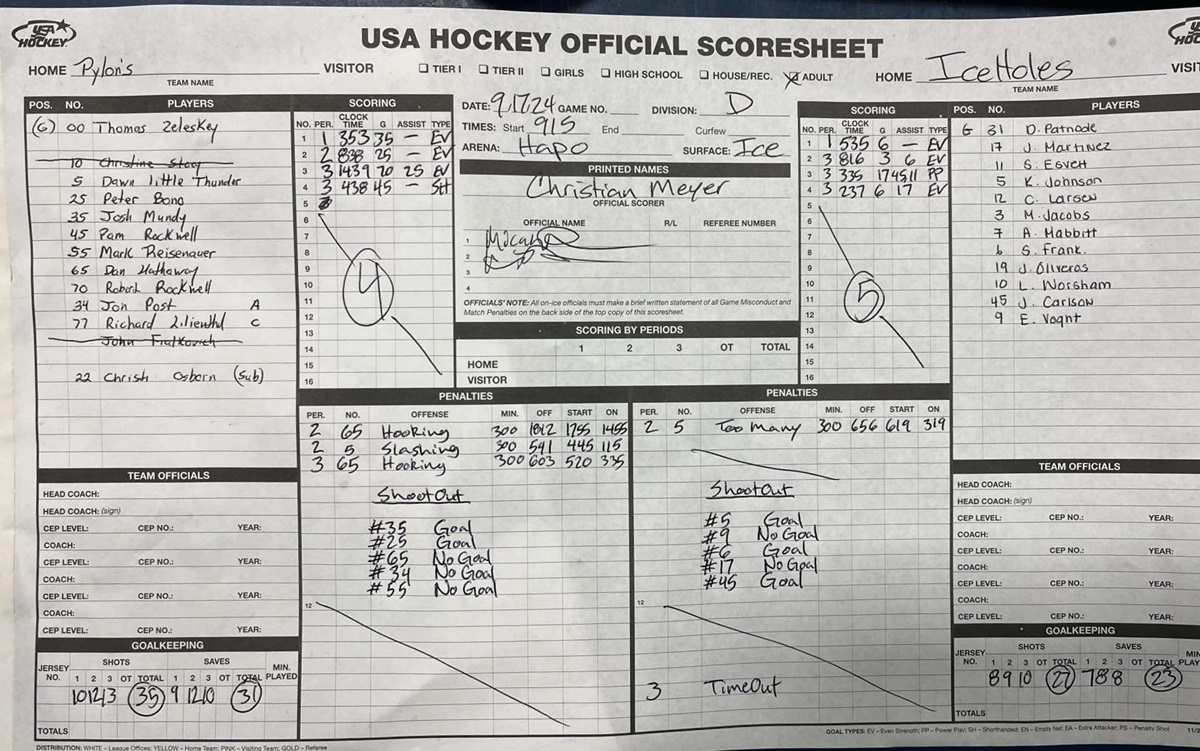 USA HOCKEY
USA HOCKEY OFFICIAL SCORESHEET
HOME Pylons VISITOR ☐ TIER I ☐ TIER II ☐ GIRLS ☐ HIGH SCHOOL ☐ HOUSE/REC. ☒ ADULT HOME IceHoles VISIT
TEAM NAME
TEAM NAME
POS. NO. PLAYERS
(G) 00 Thomas Zeleskey
10 Christine Stacy
5 Dawn Little Thunder
25 Peter Bono
35 Josh Mundy
45 Pam Rockwell
55 Mark Reisenauer
65 Dan Hathaway
70 Robert Rockwell
34 Jon Post A
77 Richard Lilienthl C
John Fratkovich
22 Christi Osborn (Sub)
SCORING
NO. PER. CLOCK TIME G ASSIST TYPE
1 1 353 35 – EV
2 2 838 25 – EV
3 3 1439 70 25 EV
4 3 438 45 – SH
5
6
7
8
9
10
11
12
13
14
15
16
4
DATE: 9.17.24 GAME NO. DIVISION: D
TIMES: Start 915 End Curfew
ARENA: Hapo SURFACE: Ice
PRINTED NAMES
Christian Meyer
OFFICIAL SCORER
OFFICIAL NAME R/L REFEREE NUMBER
1
2
3
4
OFFICIALS' NOTE: All on-ice officials must make a brief written statement of all Game Misconduct and
Match Penalties on the back side of the top copy of this scoresheet.
SCORING BY PERIODS
1 2 3 OT TOTAL
HOME
VISITOR
SCORING
NO. PER. CLOCK TIME G ASSIST TYPE
1 1 535 6 – EV
2 3 816 3 6 EV
3 3 335 17 45 11 PP
4 3 237 6 17 EV
5
6
7
8
9
10
11
12
13
14
15
16
5
POS. NO. PLAYERS
G 31 D. Patnode
17 J. Martinez
11 S. Esvelt
5 K. Johnson
12 C. Larsen
3 M. Jacobs
7 A. Mabbitt
6 S. Frank
19 J. Oliveros
10 L. Worsham
45 J. Carlson
9 E. Voght
PENALTIES
PER. NO. OFFENSE MIN. OFF START ON
2 65 Hooking 300 1812 1755 1455
2 5 Slashing 300 541 445 115
3 65 Hooking 300 603 520 335
ShootOut
#35 Goal
#25 Goal
#65 No Goal
#34 No Goal
#55 No Goal
12
PENALTIES
PER. NO. OFFENSE MIN. OFF START ON
2 5 Too Many 300 656 619 319
ShootOut
#5 Goal
#9 No Goal
#6 Goal
#17 No Goal
#45 Goal
12
3 TimeOut
TEAM OFFICIALS
HEAD COACH:
HEAD COACH: (sign)
CEP LEVEL: CEP NO.: YEAR:
COACH:
CEP LEVEL: CEP NO.: YEAR:
COACH:
CEP LEVEL: CEP NO.: YEAR:
COACH:
CEP LEVEL: CEP NO.: YEAR:
GOALKEEPING
SHOTS SAVES
JERSEY NO. 1 2 3 OT TOTAL 1 2 3 OT TOTAL MIN. PLAYED
10 12 13 35 9 12 10 31
TOTALS
TEAM OFFICIALS
HEAD COACH:
HEAD COACH: (sign)
CEP LEVEL: CEP NO.: YEAR:
COACH:
CEP LEVEL: CEP NO.: YEAR:
COACH:
CEP LEVEL: CEP NO.: YEAR:
COACH:
CEP LEVEL: CEP NO.: YEAR:
GOALKEEPING
SHOTS SAVES
JERSEY NO. 1 2 3 OT TOTAL 1 2 3 OT TOTAL MIN PLA
8 9 10 27 7 8 8 23
TOTALS
DISTRIBUTION: WHITE – League Offices; YELLOW – Home Team; PINK – Visiting Team; GOLD – Referee
GOAL TYPES: EV – Even Strength; PP – Power Play; SH – Shorthanded; EN – Empty Net; EA – Extra Attacker; PS – Penalty Shot